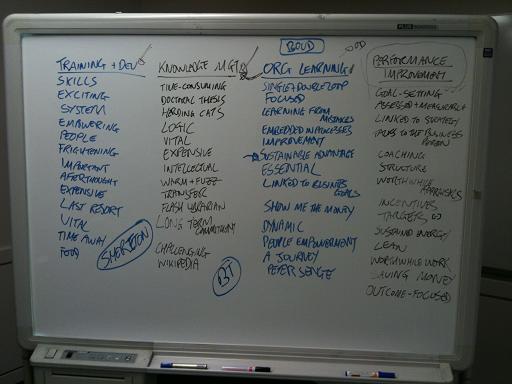 PLUS
BOUD
TRAINING + DEV
SKILLS
EXCITING
SYSTEM
EMPOWERING
PEOPLE
FRIGHTENING
IMPORTANT
AFTERTHOUGHT
EXPENSIVE
LAST RESORT
VITAL
TIME AWAY
FOOD
SHORT TERM
KNOWLEDGE MGT
TIME-CONSUMING
DOCTORAL THESIS
HERDING CATS
LOGIC
VITAL
EXPENSIVE
INTELLECTUAL
WARM + FUZZY
TRANSFER
FLASH LIBRARIAN
LONG TERM
COMMITMENT
CHALLENGING
WIKIPEDIA
BT
ORG LEARNING
SINGLE + DOUBLE LOOP
FOCUSED
LEARNING FROM
MISTAKES
EMBEDDED IN PROCESSES
IMPROVEMENT
SUSTAINABLE ADVANTAGE
ESSENTIAL
LINKED TO BUSINESS
GOALS
SHOW ME THE MONEY
DYNAMIC
PEOPLE EMPOWERMENT
A JOURNEY
PETER SENGE
PERFORMANCE
IMPROVEMENT
GOAL-SETTING
ASSESSED + MEASURABLE
LINKED TO STRATEGY
TO THE BUSINESS
COACHING
STRUCTURE
WORTHWHILE
APPRAISALS
INCENTIVES
TARGETS
SUSTAINED ENERGY
LEAN
WORTHWHILE WORK
SAVING MONEY
OUTCOME-FOCUSED